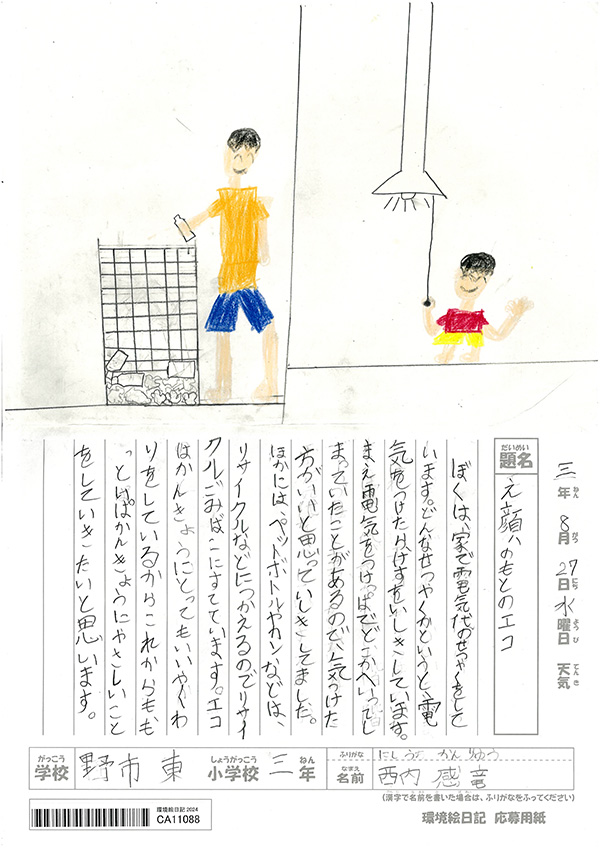 三年 8月 27日 水曜日 天気
ねん がつ にち ようび てんき
だいめい
題名
え顔のもとのエコ
ぼくは、家で電気代のせつやくをして
います。どんなせつやくかというと、電
気をつけたらけすをいしきしています。
まえ電気をつけっぱでどこかへいってし
まっていたことがあるので、気つけた
方がいいと思っていしきしてました。
ほかには、ペットボトルやカンなどは、
リサイクルなどにつかえるのでリサイ
クルごみばこにすてています。エコ
はかんきょうにとってもいいやくわ
りをしているからこれからもも
っといっぱかんきょうにやさしいこと
をしていきたいと思います。
がっこう
学校 野市東
しょうがっこう ねん
小学校 三年
ふりがな にしうち かんりゅう
なまえ
名前 西内 感竜
(漢字で名前を書いた場合は、ふりがなをふってください)
環境絵日記2024
CA11088
環境絵日記 応募用紙